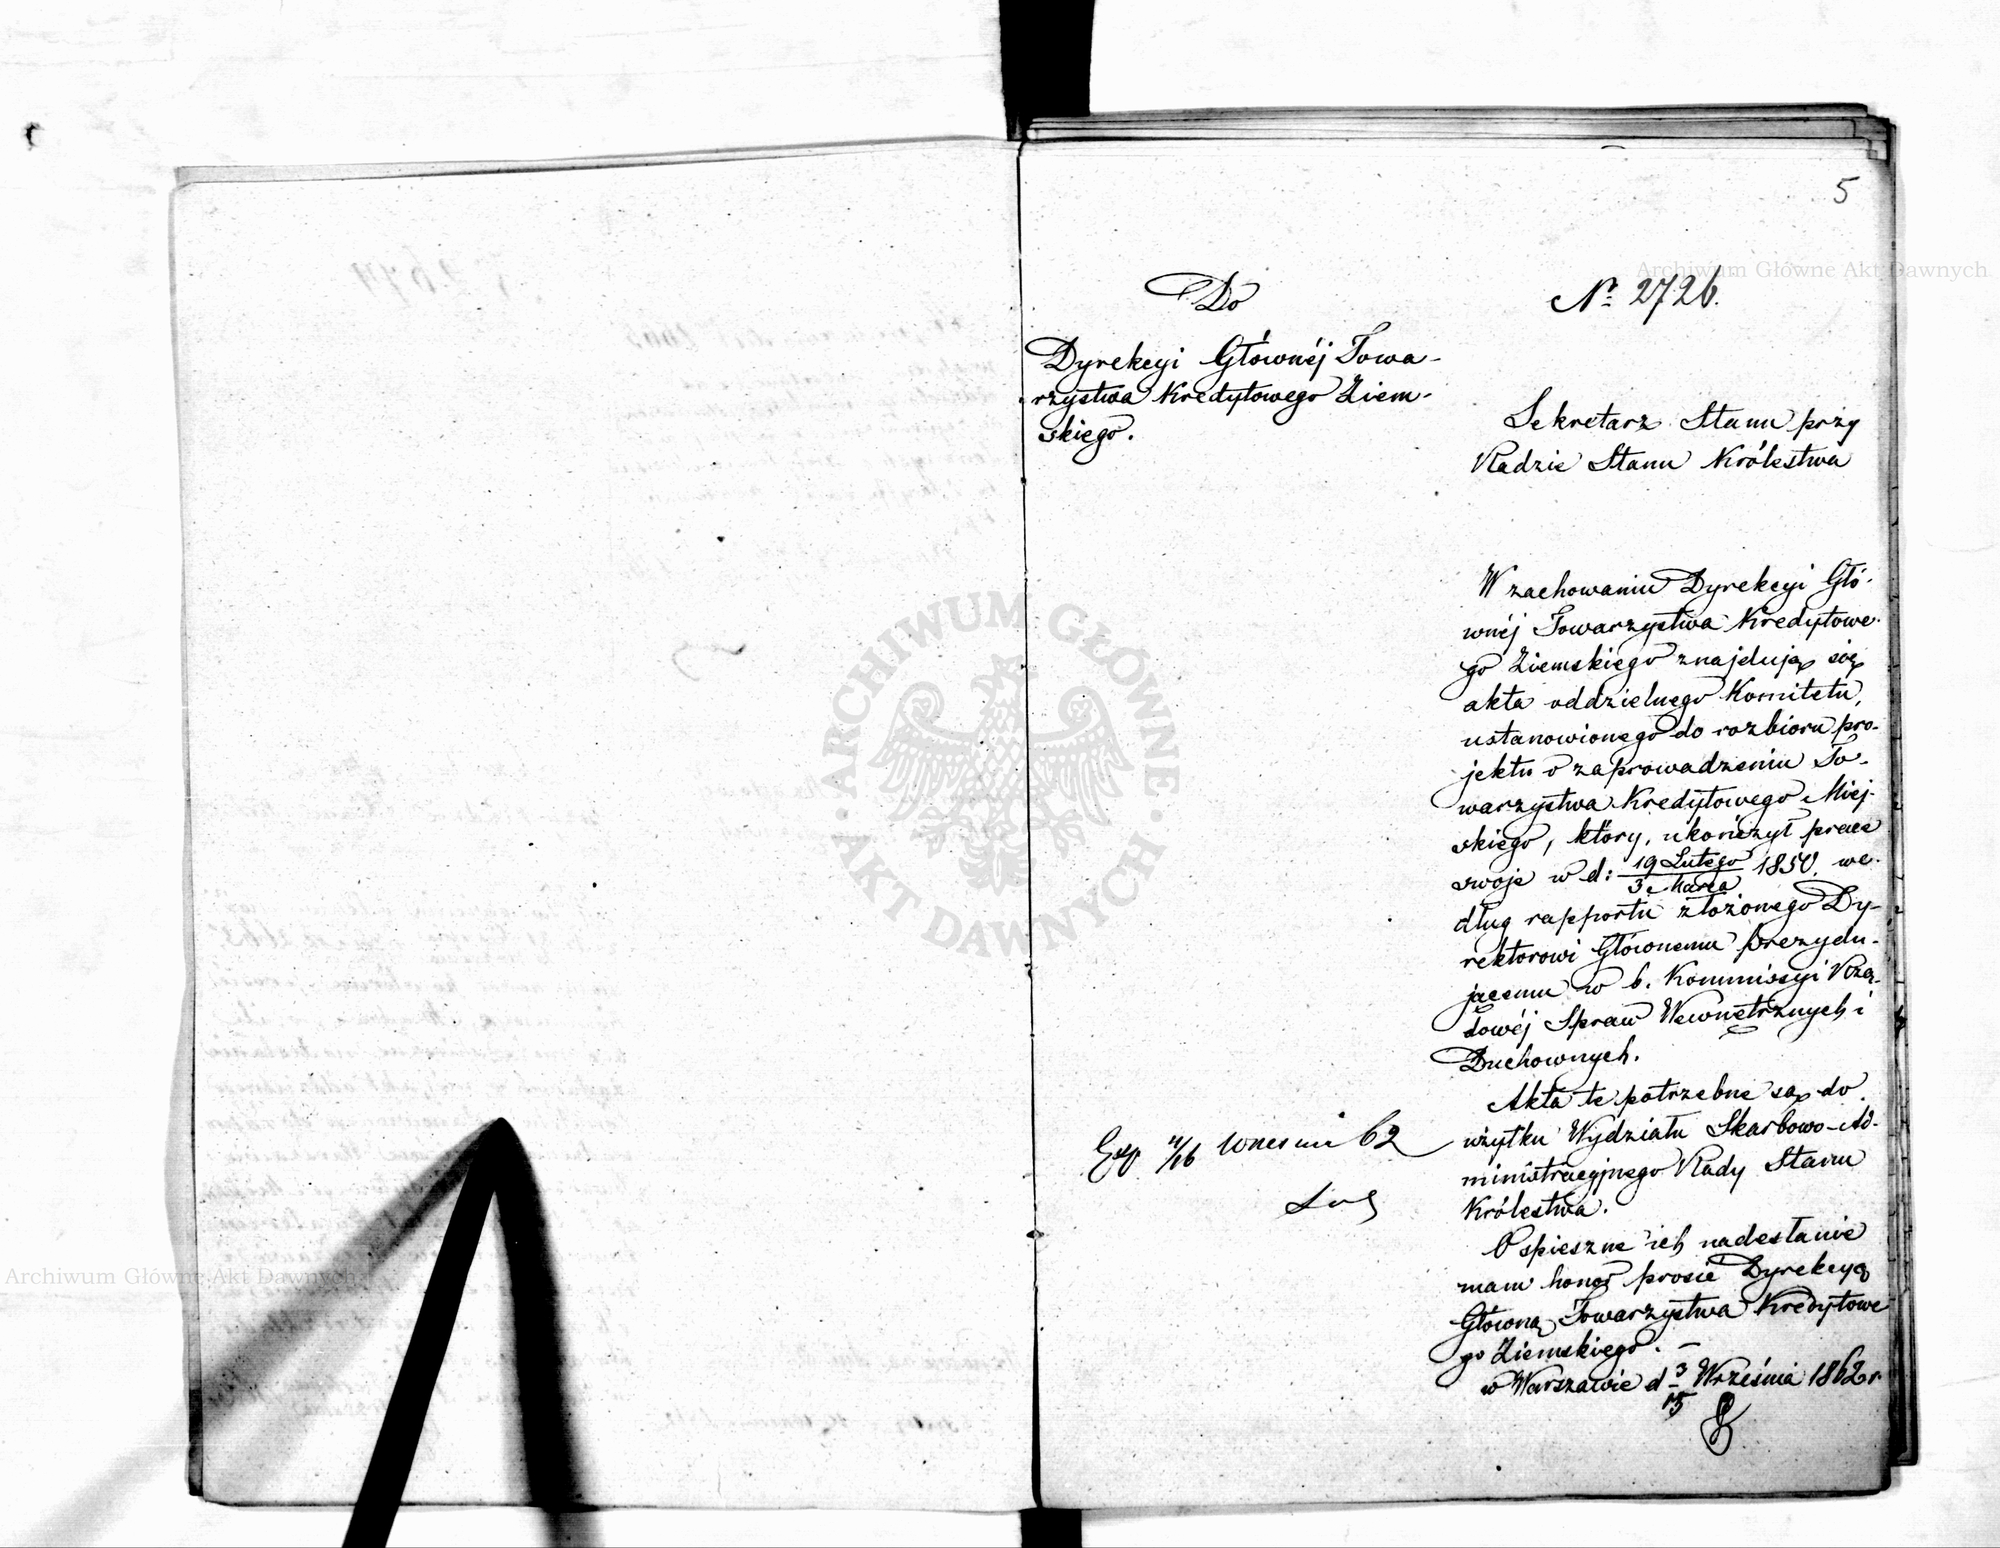 5
Do
Dyrekcyi Głównéj Towa-
rzystwa Kredytowego Ziem-
skiego.
№ 2726.
Sekretarz Stanu przy
Radzie Stanu Królestwa
W zachowaniu Dyrekcyi Głó-
wnéj Towarzystwa Kredytowe-
go Ziemskiego znajdują się
akta oddzielnego Komitetu,
ustanowionego do rozbioru pro-
jektu o zaprowadzeniu To-
warzystwa Kredytowego Miej-
skiego, który, ukończył prace
swoje w d: 19 Lutego / 3 Marca 1850. we-
dług rapportu złożonego Dy-
rektorowi Głównemu prezydu-
jącemu w b. Kommissyi Rzą-
dowéj Spraw Wewnętrznych i
Duchownych.
Akta te potrzebne są do
użytku Wydziału Skarbowo-Ad-
ministracyjnego Rady Stanu
Królestwa.
O spieszne ich nadesłanie
mam honor prosić Dyrekcyą
Główną Towarzystwa Kredytowe
go Ziemskiego. –
w Warszawie d 3/15 Września 1862 r
Exp 4/16 Wrześni 62
Archiwum Główne Akt Dawnych
Archiwum Główne Akt Dawnych
ARCHIWUM GŁÓWNE
AKT DAWNYCH